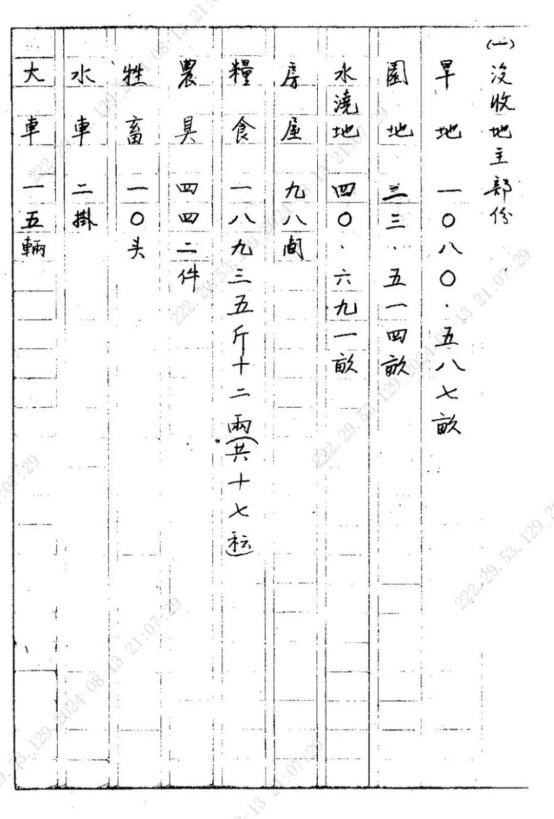 (一)没收地主部份
旱地 一〇八〇·五八七畝
園地 三三·五一四畝
水澆地 四〇·六九一畝
房屋 九八間
糧食 一八九三五斤十二兩(共十七種)
農具 四四二件
牲畜 一〇头
水車 二掛
大車 一五輛
222.29.53.129 2024-08-13 21:07:29